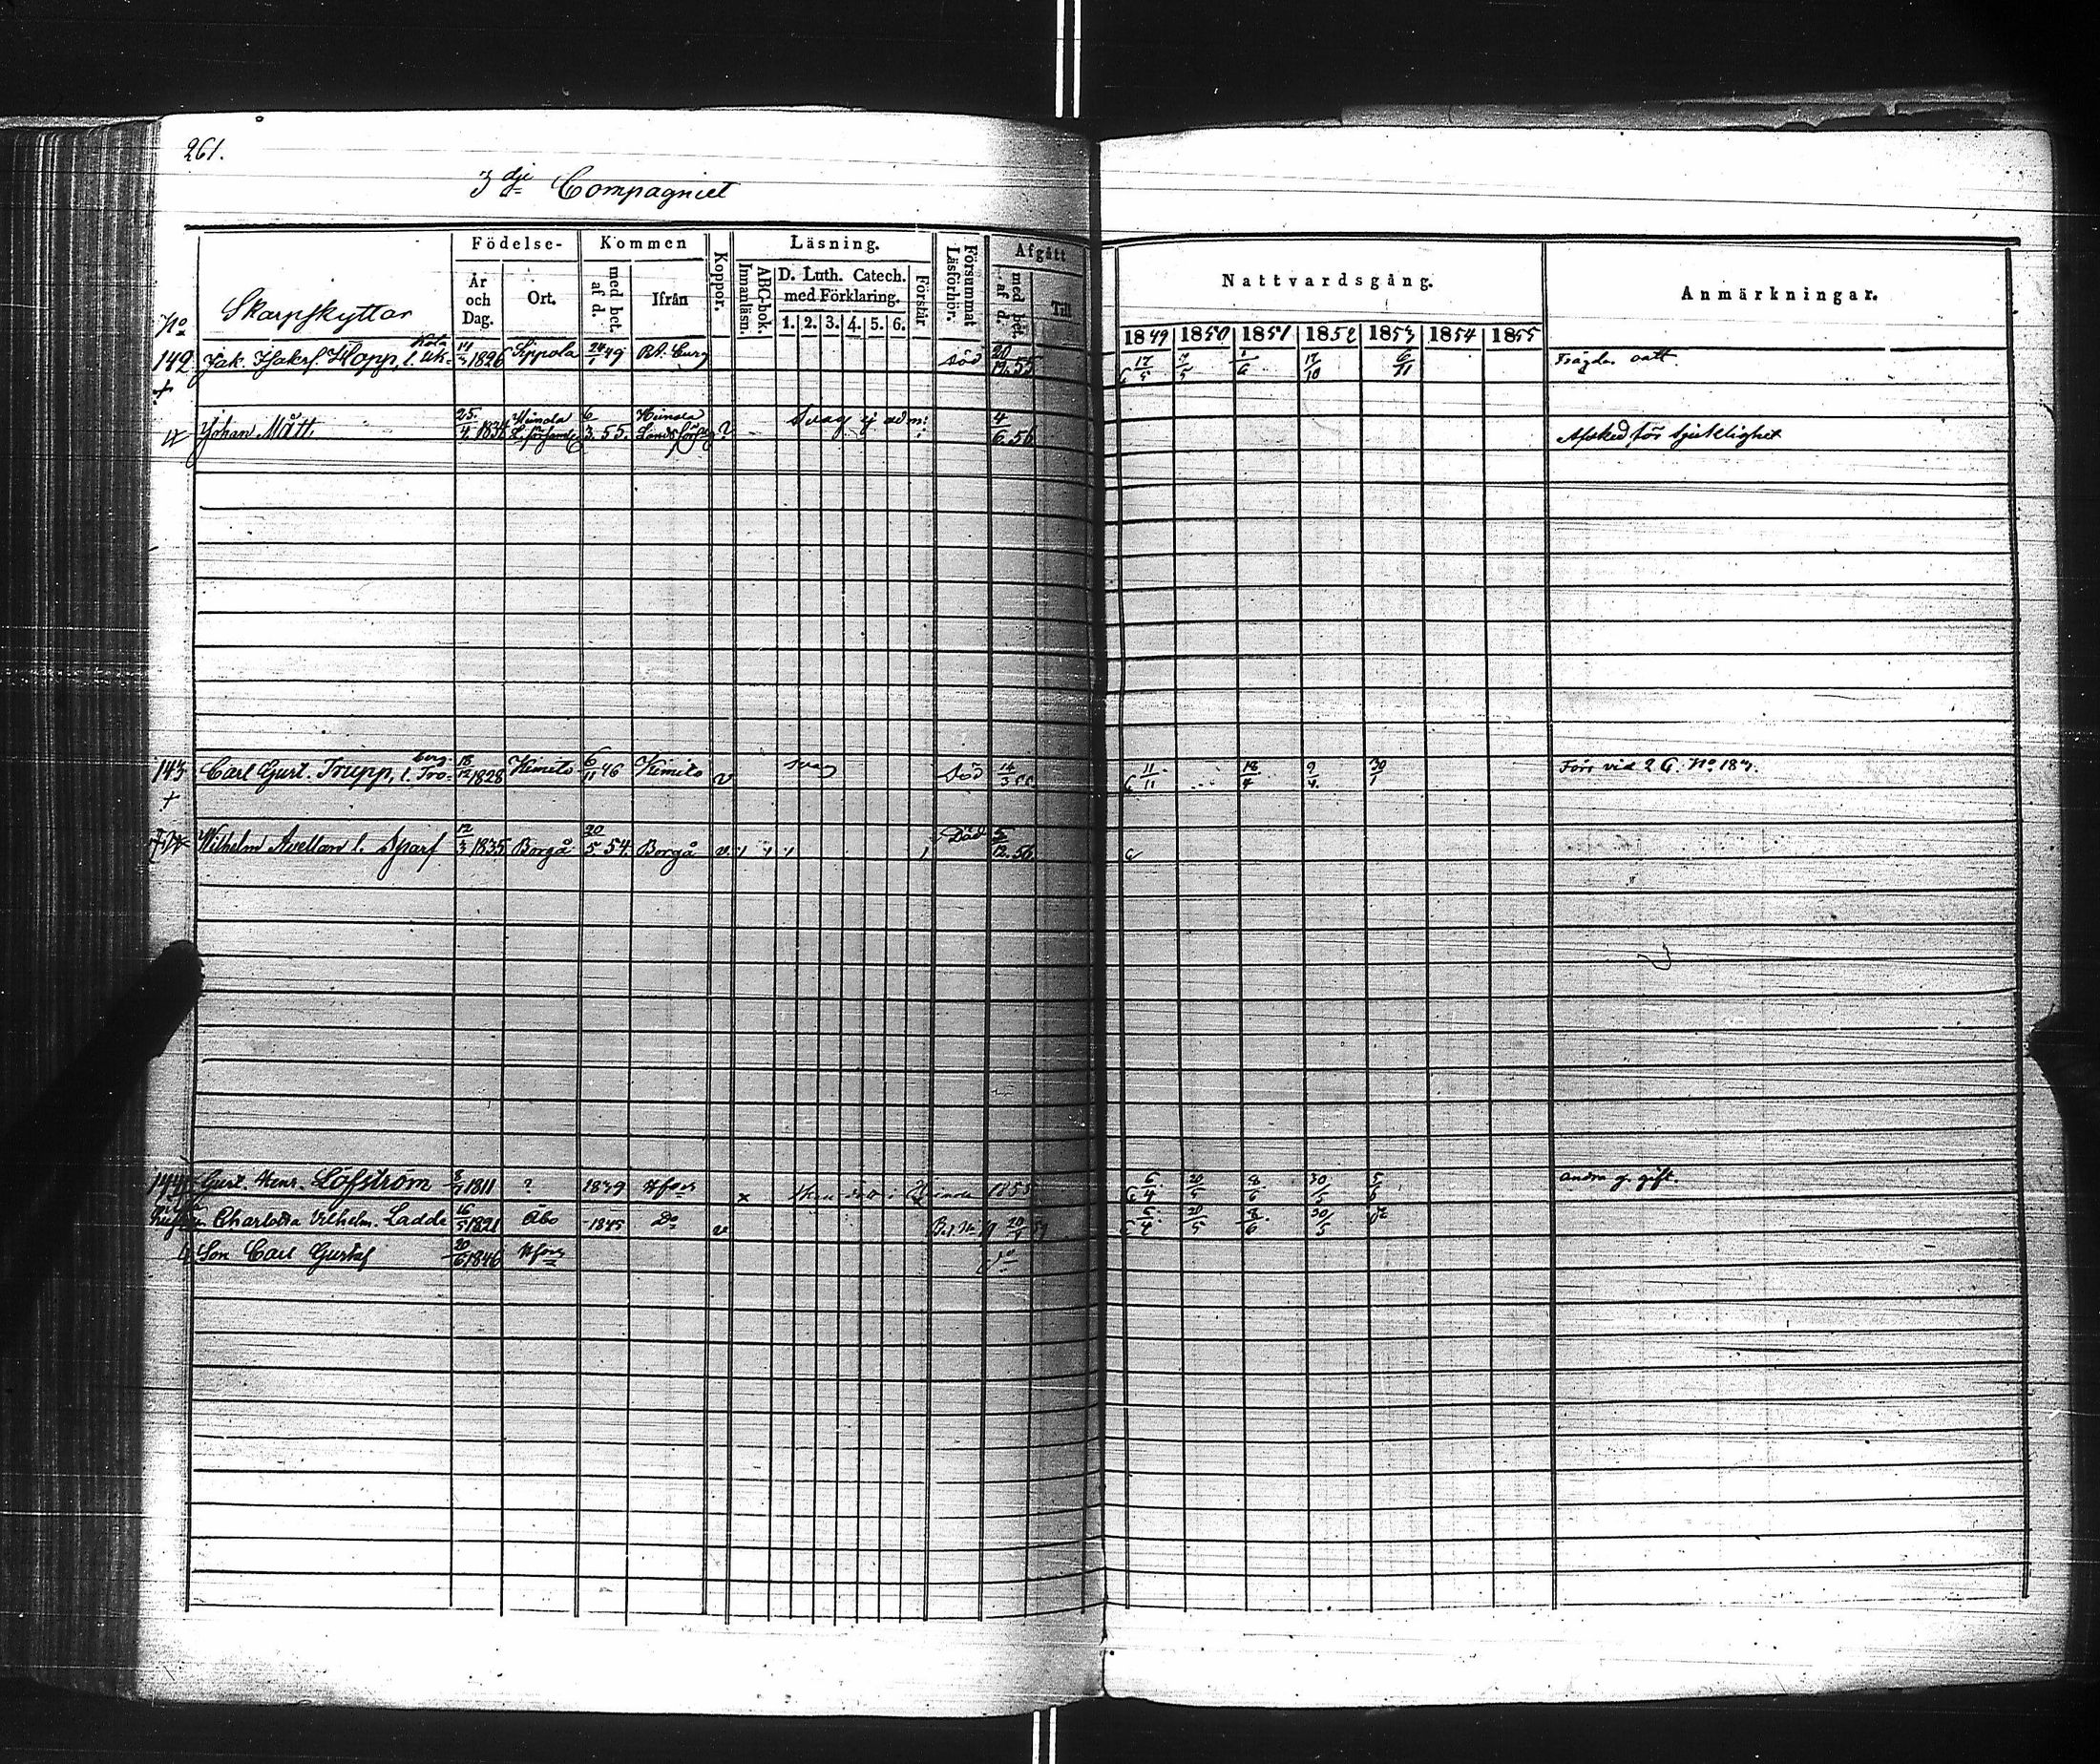 261.
3 dje Compagniet
Födelse- Kommen Läsning. Afgått
No Skarpskyttar År och Dag. Ort. med bet. af d. Ifrån Koppor. Innanläsn. ABC-bok. D. Luth. Catech. med Förklaring. 1. 2. 3. 4. 5. 6. Förstår Försummat Läsförhör. med bet. af d. Till
Nattvardsgång. Anmärkningar.
1849 1850 1851 1852 1853 1854 1855
142 Jak. Hopp, l. 14/ 1826 Sippola 24/1 49 död 20/12 55 17/5 7/5 1/6 17/10 6/11
+
Johan Mått 25./4. 1834 6/3. 55. ? Svag ej adm: 4/6 56 Afsked för sjuklighet
143 Carl Gust. Trupp, l. Tro- berg 18/12 1828 Kimito 6/11 46 Kimito v svag död 14/3 11/11 18/4 9/4 30/1 Förr vid 2 C. No 187.
+
Wilhelm Avellan l. Sparf 12/3 1835 Borgå 20/5 54 Borgå v Död 5/12. 56
144 Gust. Henr. Löfström 8/7 1811 ? 1839 Hfors x 1855 6/4 20/5 8/6 30/5 andra g. gift.
Hustrun Charlotta Vilhelm. Ladda 16/5 1821 Åbo 1845 Do v 6/4 20/5 8/6 30/5
Son Carl Gustaf 20/6 1846 Hfors